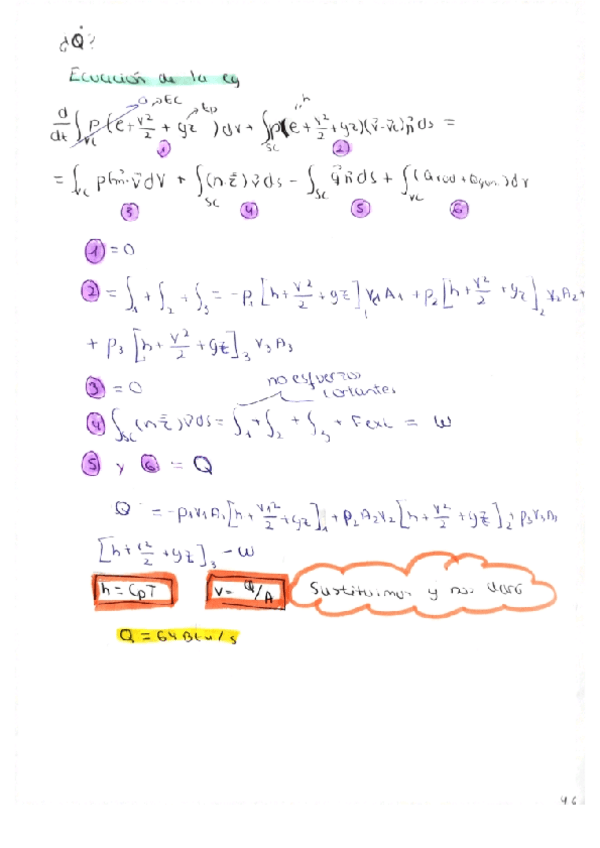 ¿Q̇?
Ecuación de la eg
0, EC Ep h
d/dt ∫vc ρ(e + v²/2 + gz) dv + ∫sc ρ(e + v²/2 + gz)(v⃗-v⃗c)n⃗ ds =
1 2
= ∫vc ρ f⃗m·v⃗ dV + ∫sc (n τ̿)v⃗ ds - ∫sc q⃗ n⃗ ds + ∫vc (Qrad + Qquim) dv
3 4 5 6
1 = 0
2 = ∫1 + ∫2 + ∫3 = -ρ1 [h + v²/2 + gz]1 v1A1 + ρ2 [h + v²/2 + gz]2 v2A2 +
+ ρ3 [h + v²/2 + gz]3 v3A3
3 = 0
no esfuerzos cortantes
4 ∫sc (n τ̿)v⃗ ds = ∫1 + ∫2 + ∫3 + Fext = W
5 y 6 = Q
Q = -ρ1v1A1 [h + v1²/2 + gz]1 + ρ2A2v2 [h + v²/2 + gz]2 + ρ3v3A3
[h + v²/2 + gz]3 - W
h = CpT v = Q/A Sustituimos y nos dará
Q = 64 Btu/s
46